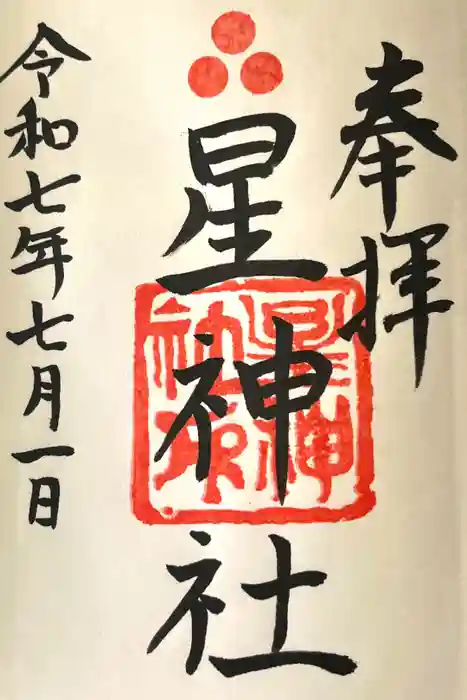 奉拝
星神社
令和七年七月一日